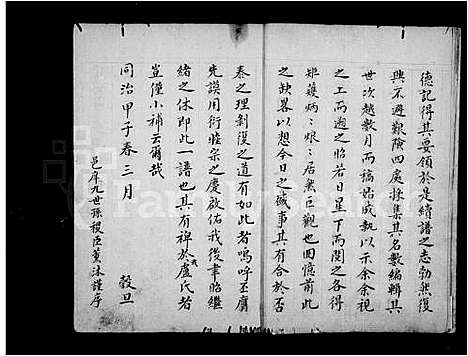 德記得其要領於是續譜之志勃然復
興不避艱險四處採集其名數編輯其
世次越數月而稿始成執以示余余視
之上而遡之昭若日星下而閱之各得
雖蔑炳炳烺烺居然巨觀也因憶前此
之缺畧以想今日之盛事其有合於否
泰之理剝復之道有如此者嗚呼丕膺
先謨用衍睦宗之慶啟佑我後聿昭繼
緒之休即此一譜也其有裨於我盧氏者
豈僅小補云爾哉
同治甲子春三月 穀旦
邑庠九世孫 臣薰沐謹序